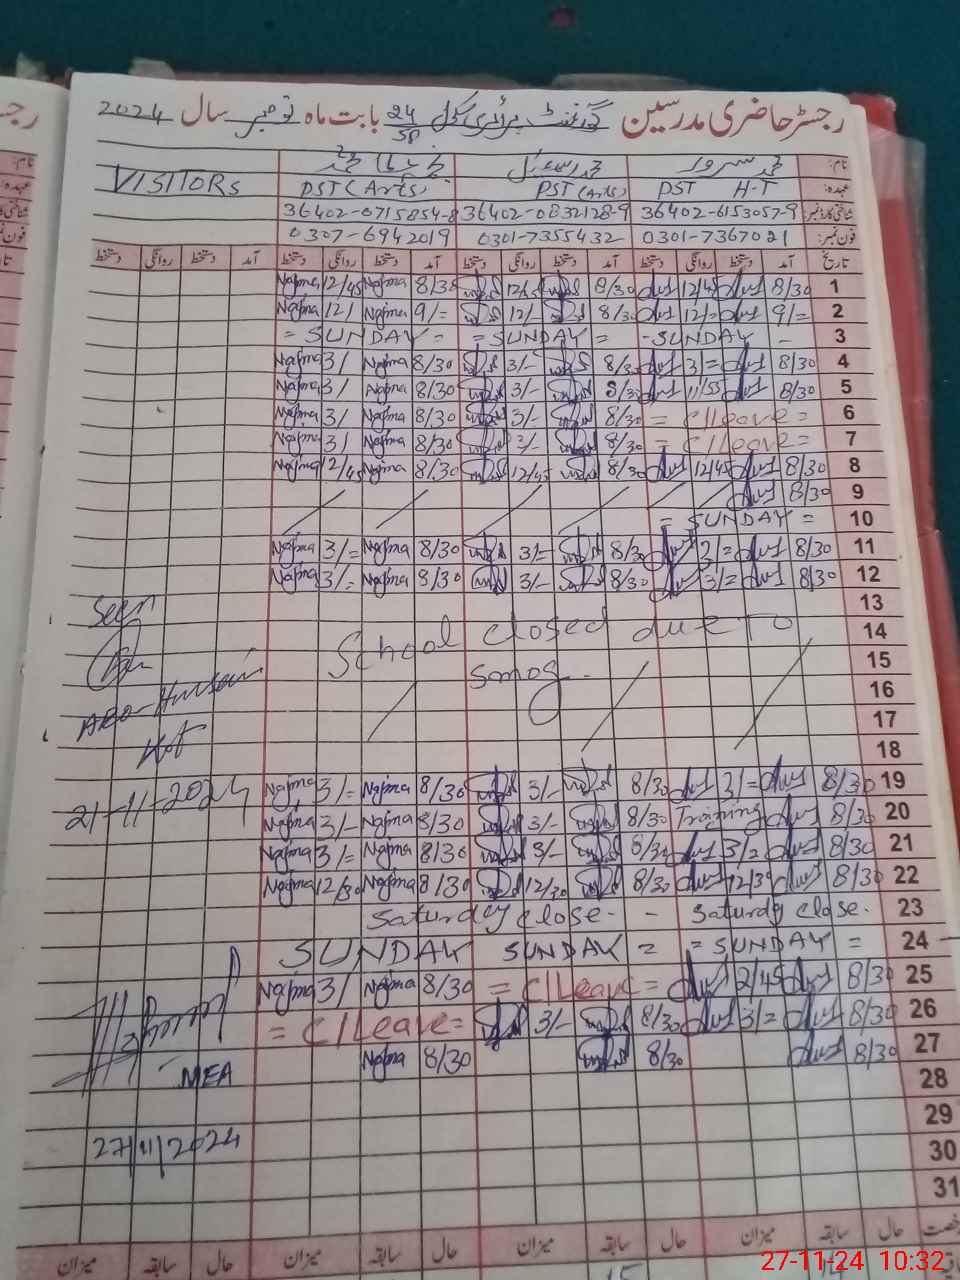 رجسٹر حاضری مدرسین گورنمنٹ پرائمری سکول 24/SP بابت ماہ نومبر سال 2024
نام: محمد سرور محمد
عہدہ: PST H-T PST (Arts) PST (Arts) VISITORS
شناختی کارڈ نمبر: 36402-6153057-9 36402-0832128-9 36402-0715854-8
فون نمبر: 0301-7367021 0301-7355432 0307-6942019
تاریخ آمد دستخط روانگی دستخط آمد دستخط روانگی دستخط آمد دستخط روانگی دستخط آمد دستخط روانگی دستخط
1 8/30 12/45 8/30 8/30 Najma 12/45 Najma
2 9/= 12/= 8/30 12/- 9/= Najma 12/ Najma
3 - SUNDAY - = SUNDAY = = SUNDAY =
4 8/30 3/= 8/30 3/- 8/30 Najma 3/ Najma
5 8/30 11/55 8/30 3/- 8/30 Najma 3/ Najma
6 = C/Leave = 8/30 3/- 8/30 Najma 3/ Najma
7 = C/Leave = 8/30 3/- 8/30 Najma 3/ Najma
8 8/30 12/45 8/30 12/45 8/30 Najma 12/45 Najma
9 8/30
10 = SUNDAY =
11 8/30 3/= 8/30 3/= 8/30 Najma 3/= Najma
12 8/30 3/= 8/30 3/- 8/30 Najma 3/- Najma
13 Seen
14 School closed due to
15 smog.
16
17
18
19 8/30 3/= 8/30 3/- 8/30 Najma 3/= Najma
21-11-2024
20 8/30 Training 8/30 3/- 8/30 Najma 3/- Najma
21 8/30 3/= 8/30 3/- 8/30 Najma 3/= Najma
22 8/30 12/30 8/30 12/30 8/30 Najma 12/30 Najma
23 Saturdy close. - Saturdey close -
24 = SUNDAY = SUNDAY = SUNDAY
25 8/30 2/45 = C/Leave = 8/30 Najma 3/ Najma
26 8/30 3/= 8/30 3/- = C/Leave =
27 8/30 8/30 8/30 Najma
MEA
28
29
27/11/2024
30
31
رخصت حال سابقہ میزان حال سابقہ میزان حال سابقہ میزان
15
27-11-24 10:32